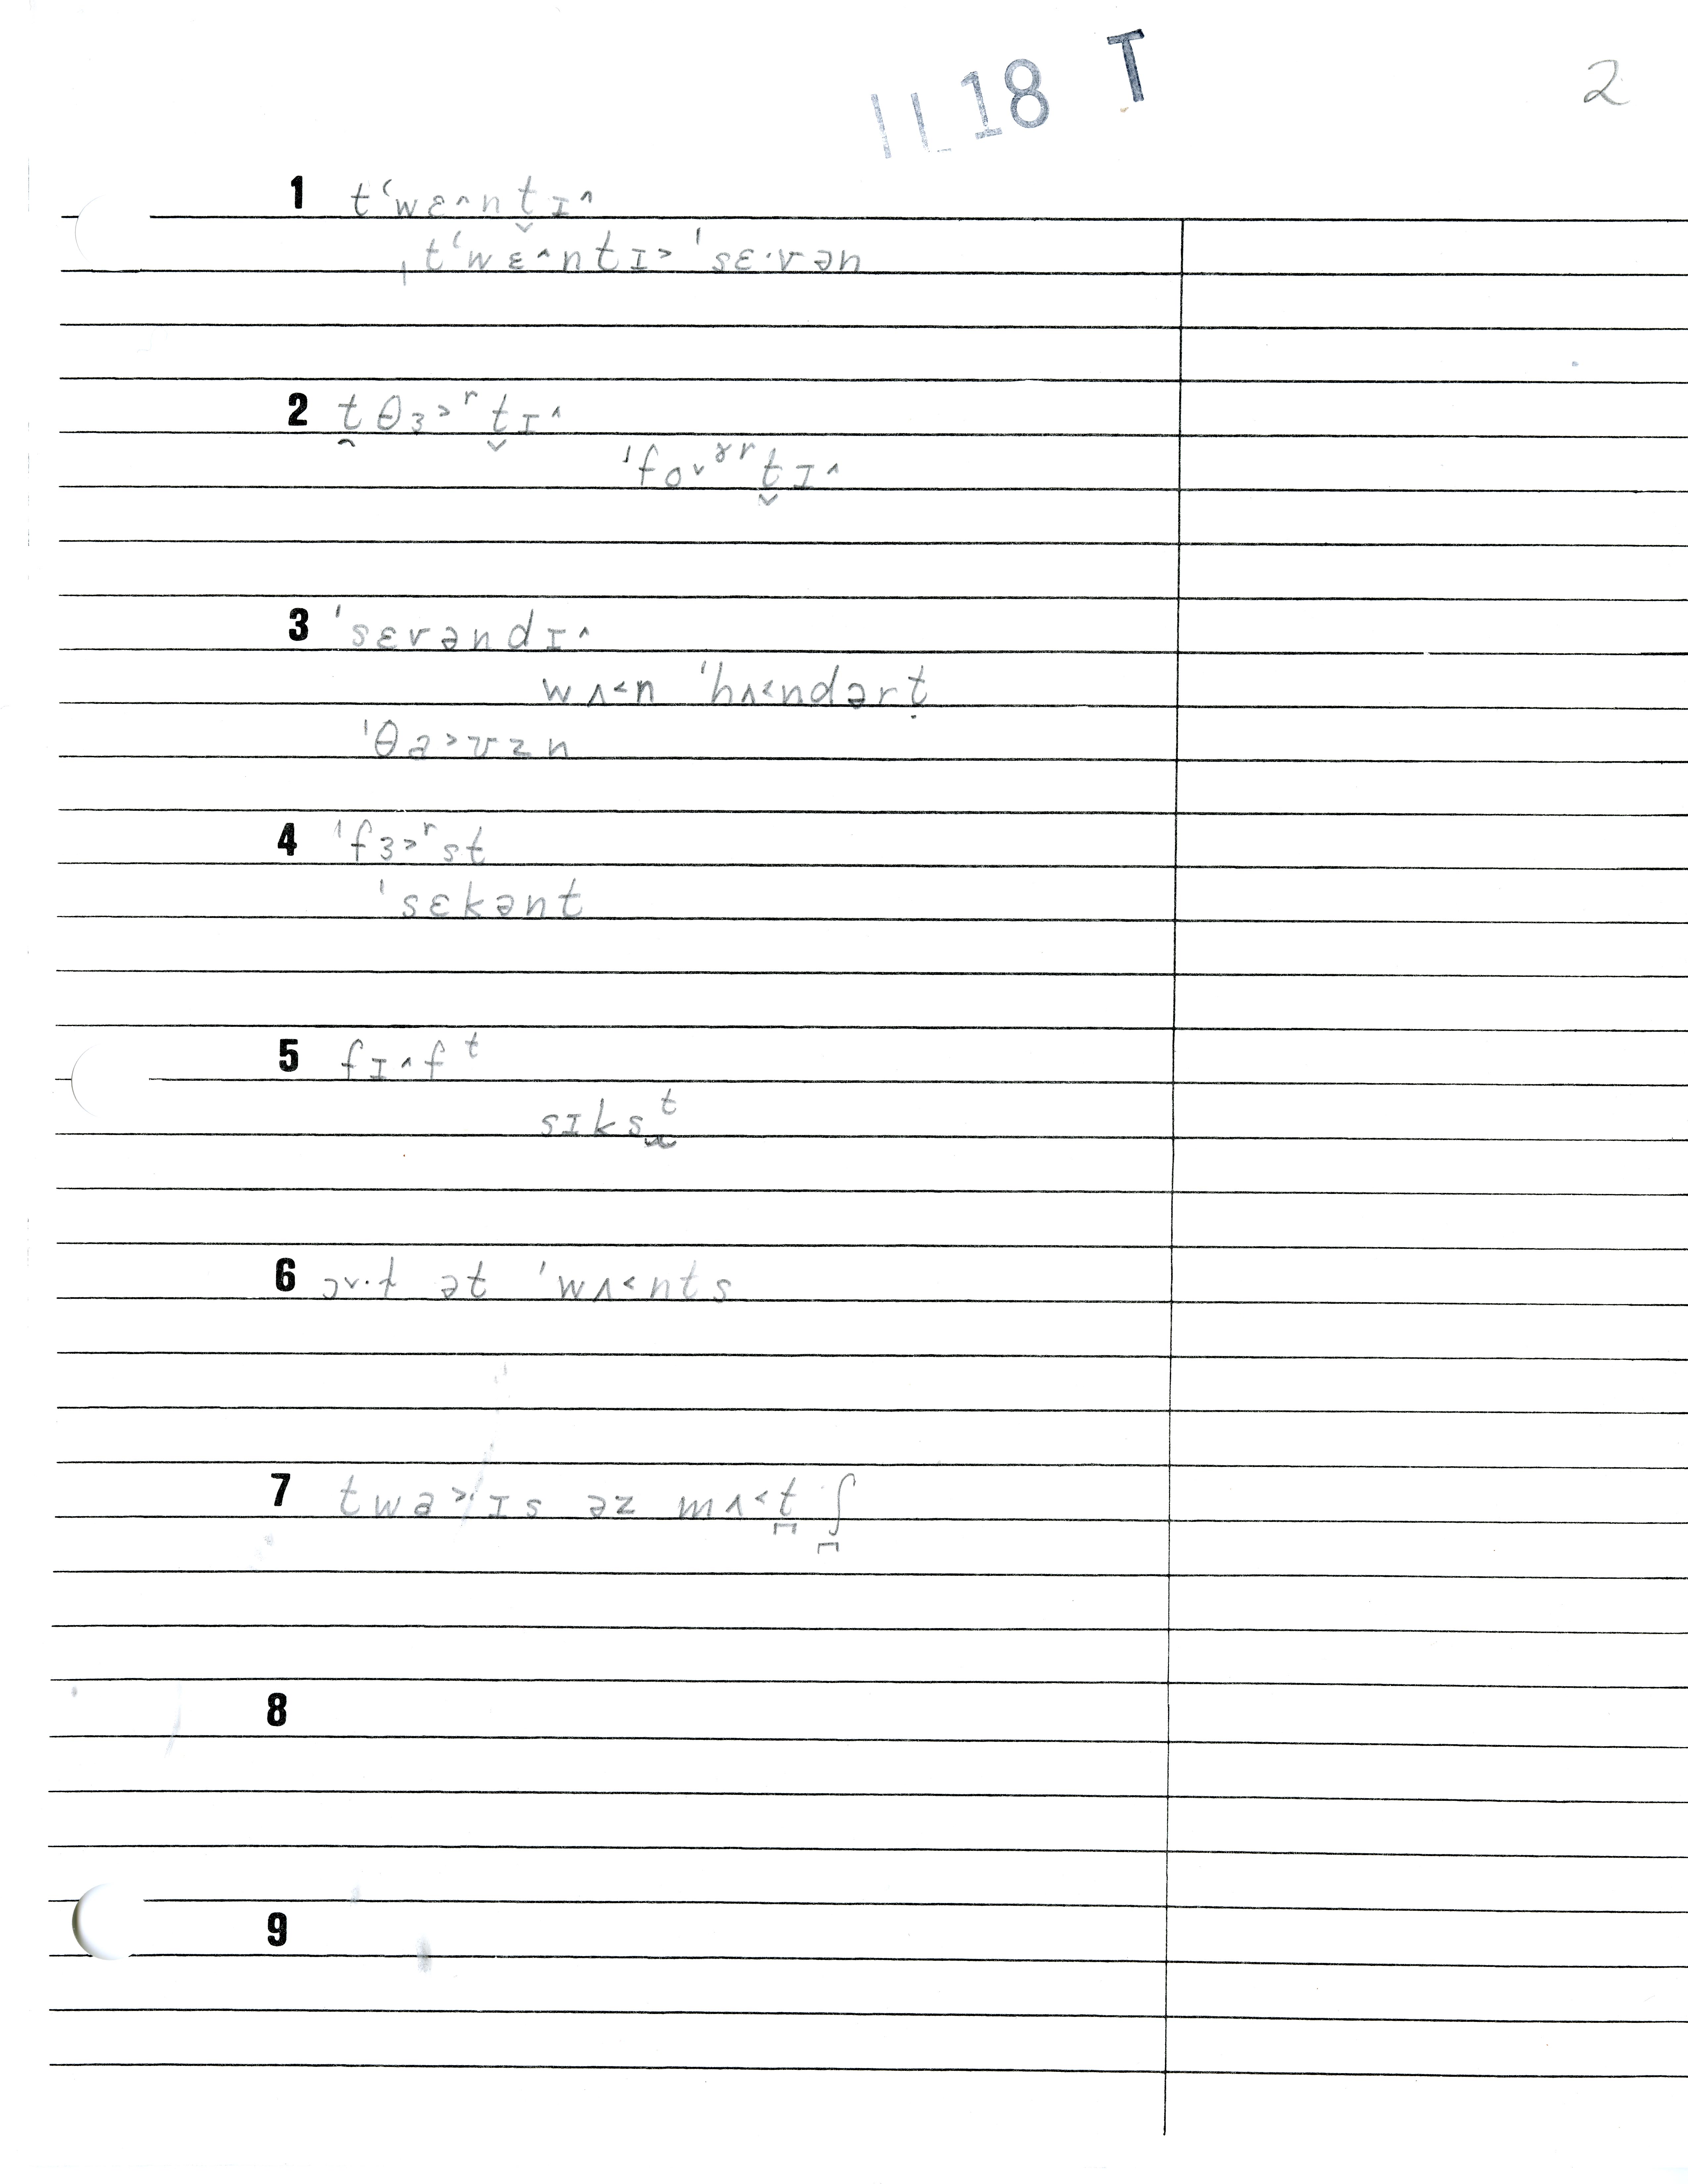 IL 18 T
2
1 tʻwɛ˄nt̬ɪ˄
ˌtʻwɛ˄ntɪ˃ ˈsɛ·vən
2 t̯θɜ˃ʳt̬ɪ˄
ˈfo˅ᵊʳt̬ɪ˄
3 ˈsɛvəndɪ˄
wʌ˂n ˈhʌ˂ndərṭ
ˈθa˃ʊzn
4 ˈfɜ˃ʳst
ˈsɛkənt
5 fɪ˄fᵗ
sɪksᵗ
6 ɔ˅·l ət ˈwʌ˂nts
7 twa˃·ɪs əz mʌ˂t̪ʃ̪
8
9